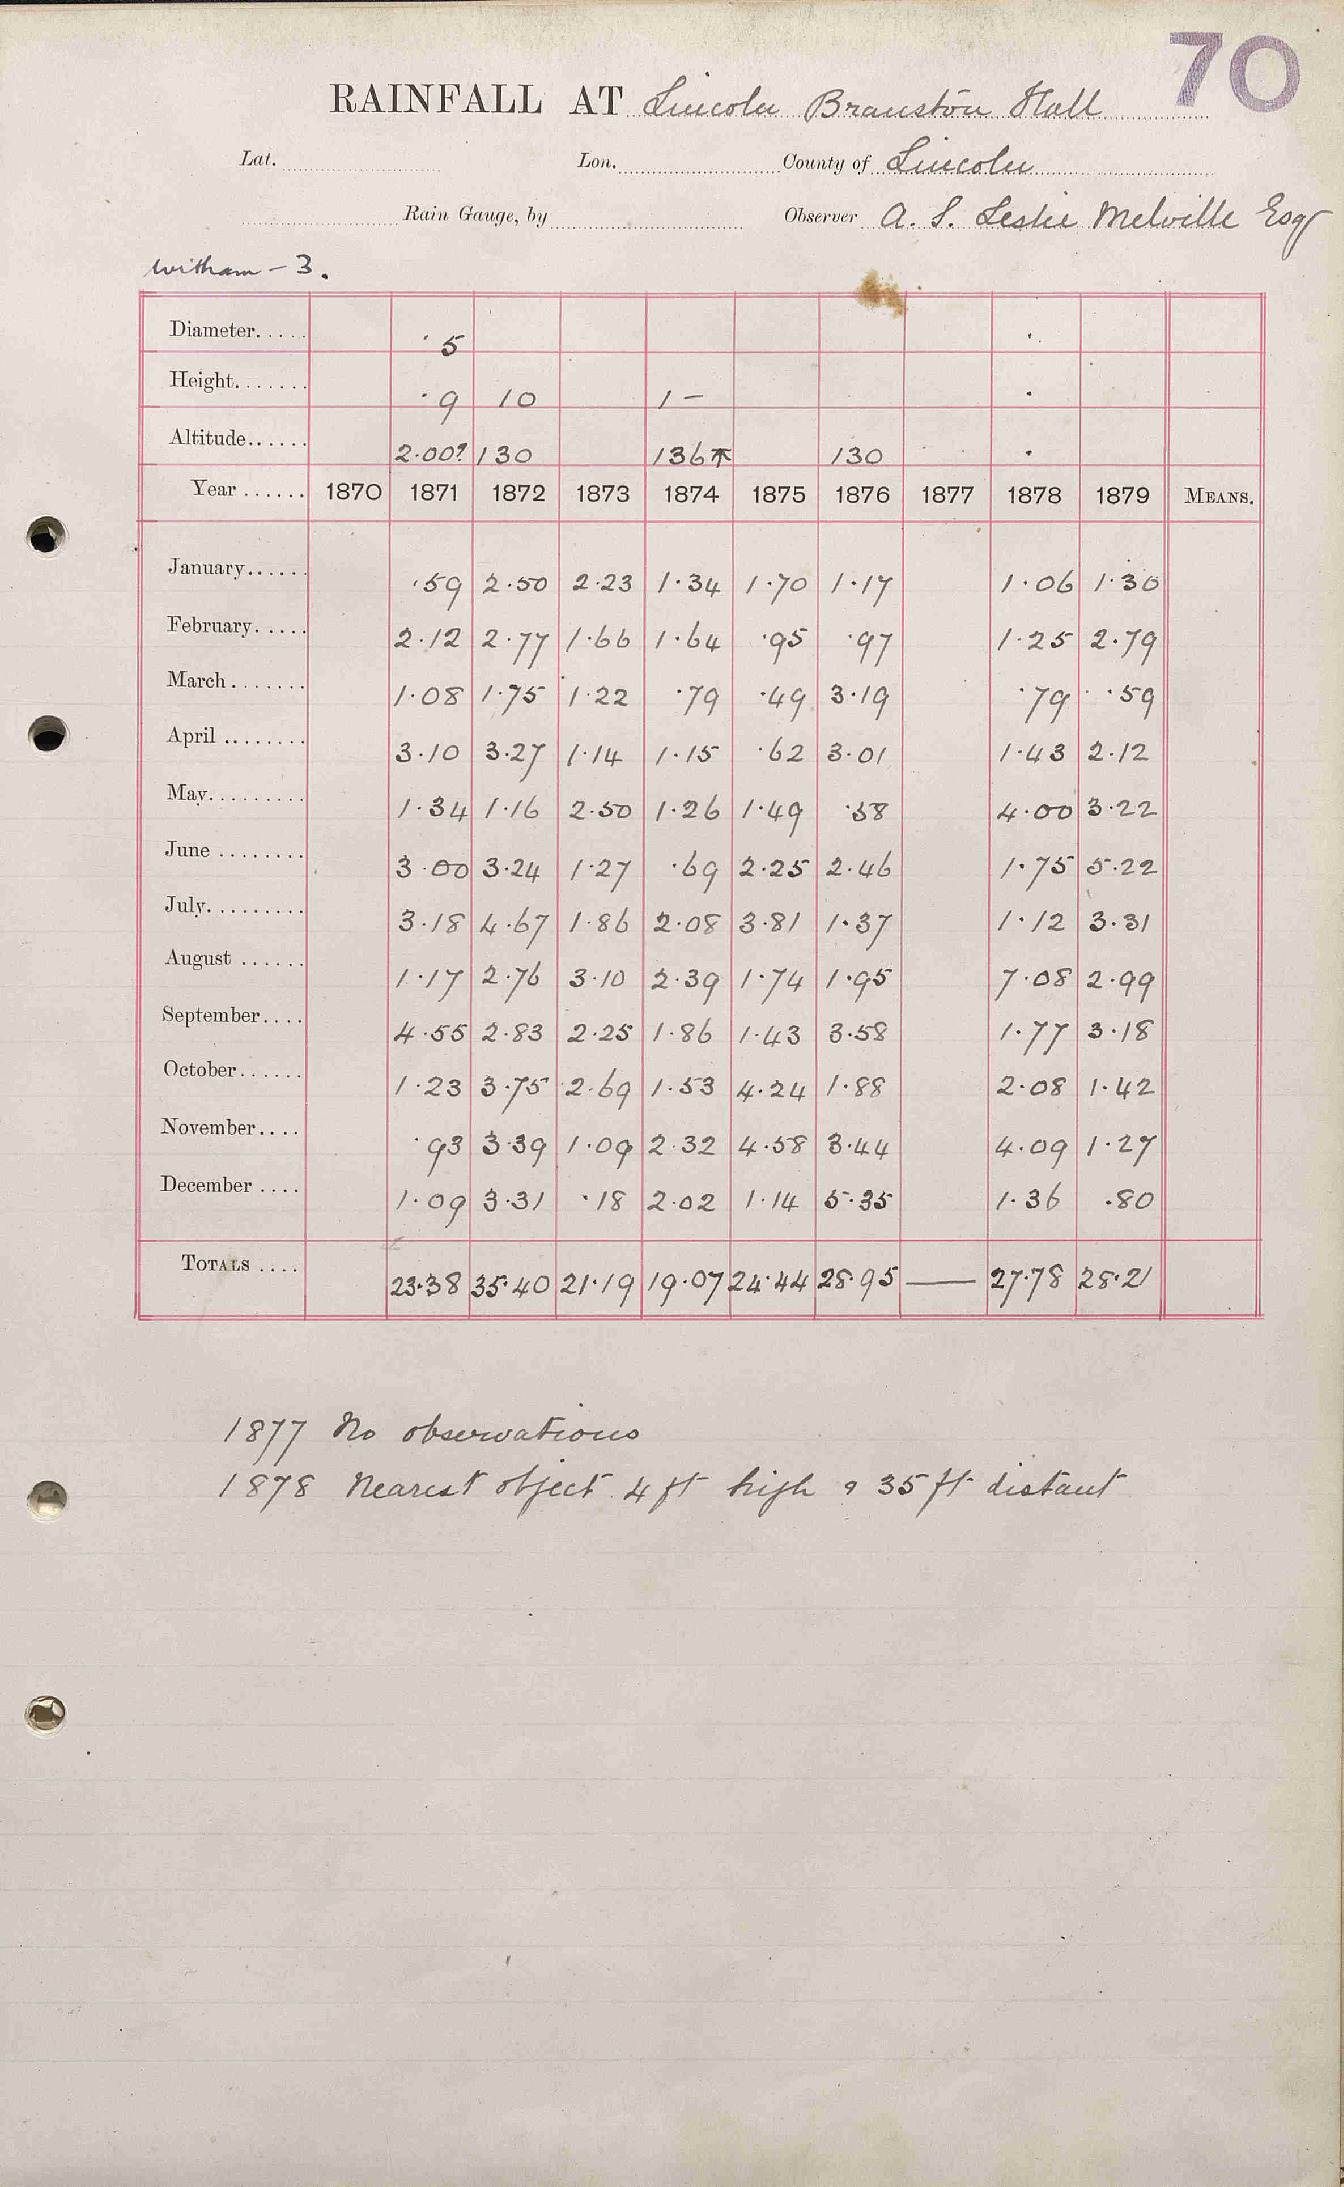 70
RAINFALL AT Lincoln Branston Hall
Lat. Lon. County of Lincoln
Rain Gauge, by Observer A. S. Leslie Melville Esq
Witham - 3.
Diameter..... ·5
Height....... ·9 10 1 -
Altitude...... 2·00? 130 136 130
Year ...... 1870 1871 1872 1873 1874 1875 1876 1877 1878 1879 MEANS.
January...... ·59 2·50 2·23 1·34 1·70 1·17 1·06 1·30
February..... 2·12 2·77 1·66 1·64 ·95 ·97 1·25 2·79
March....... 1·08 1·75 1·22 ·79 ·49 3·19 ·79 ·59
April ........ 3·10 3·27 1·14 1·15 ·62 3·01 1·43 2·12
May......... 1·34 1·16 2·50 1·26 1·49 ·58 4·00 3·22
June ........ 3·00 3·24 1·27 ·69 2·25 2·46 1·75 5·22
July......... 3·18 4·67 1·86 2·08 3·81 1·37 1·12 3·31
August ...... 1·17 2·76 3·10 2·39 1·74 1·95 7·08 2·99
September.... 4·55 2·83 2·25 1·86 1·43 3·58 1·77 3·18
October...... 1·23 3·75 2·69 1·53 4·24 1·88 2·08 1·42
November.... ·93 3·39 1·09 2·32 4·58 3·44 4·09 1·27
December .... 1·09 3·31 ·18 2·02 1·14 5·35 1·36 ·80
TOTALS .... 23·38 35·40 21·19 19·07 24·44 28·95 — 27·78 28·21
1877 No observations
1878 Nearest object 4 ft high & 35 ft distant